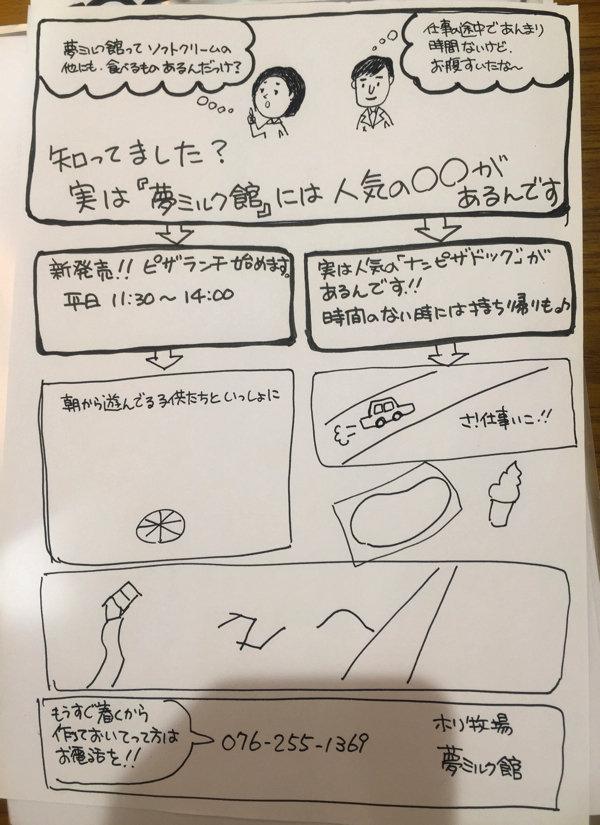 夢ミルク館って ソフトクリームの
他にも、食べるもの あるんだっけ？
仕事の途中であんまり
時間ないけど、
お腹すいたな〜
知ってました？
実は『夢ミルク館』には 人気の〇〇が
あるんです
新発売!! ピザランチ始めます。
平日 11:30〜14:00
実は人気の「ナンピザドッグ」が
あるんです!!
時間のない時には持ち帰りも♪
朝から遊んでる子供たちといっしょに
さ!仕事いこ!!
もうすぐ着くから
作っておいてって方は
お電話を!!
076-255-1369
ホリ牧場
夢ミルク館